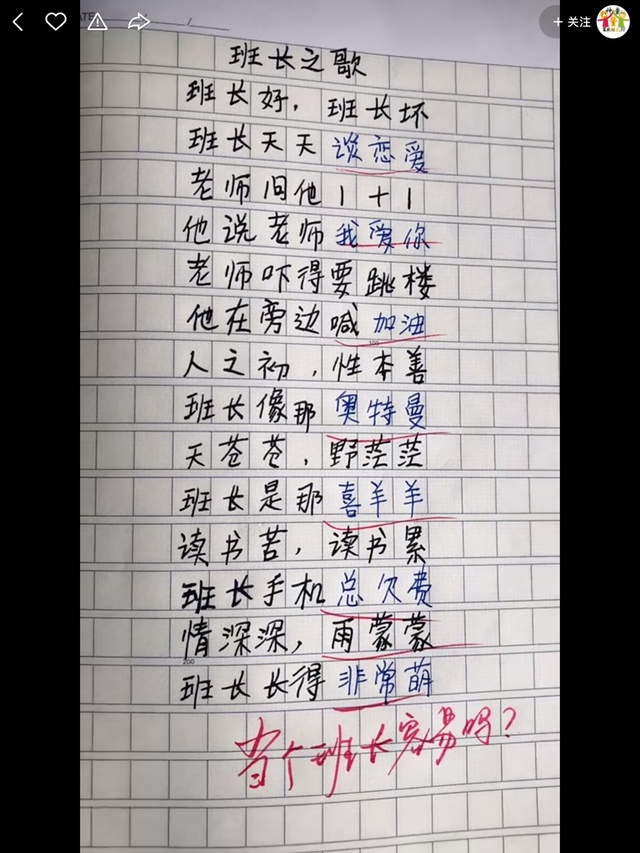 + 关注
班长之歌
班长好，班长坏
班长天天谈恋爱
老师问他1+1
他说老师我爱你
老师吓得要跳楼
他在旁边喊加油
100
人之初，性本善
班长像那奥特曼
天苍苍，野茫茫
班长是那喜羊羊
读书苦，读书累
班长手机总欠费
情深深，雨蒙蒙
200
班长长得非常萌
当个班长容易吗？